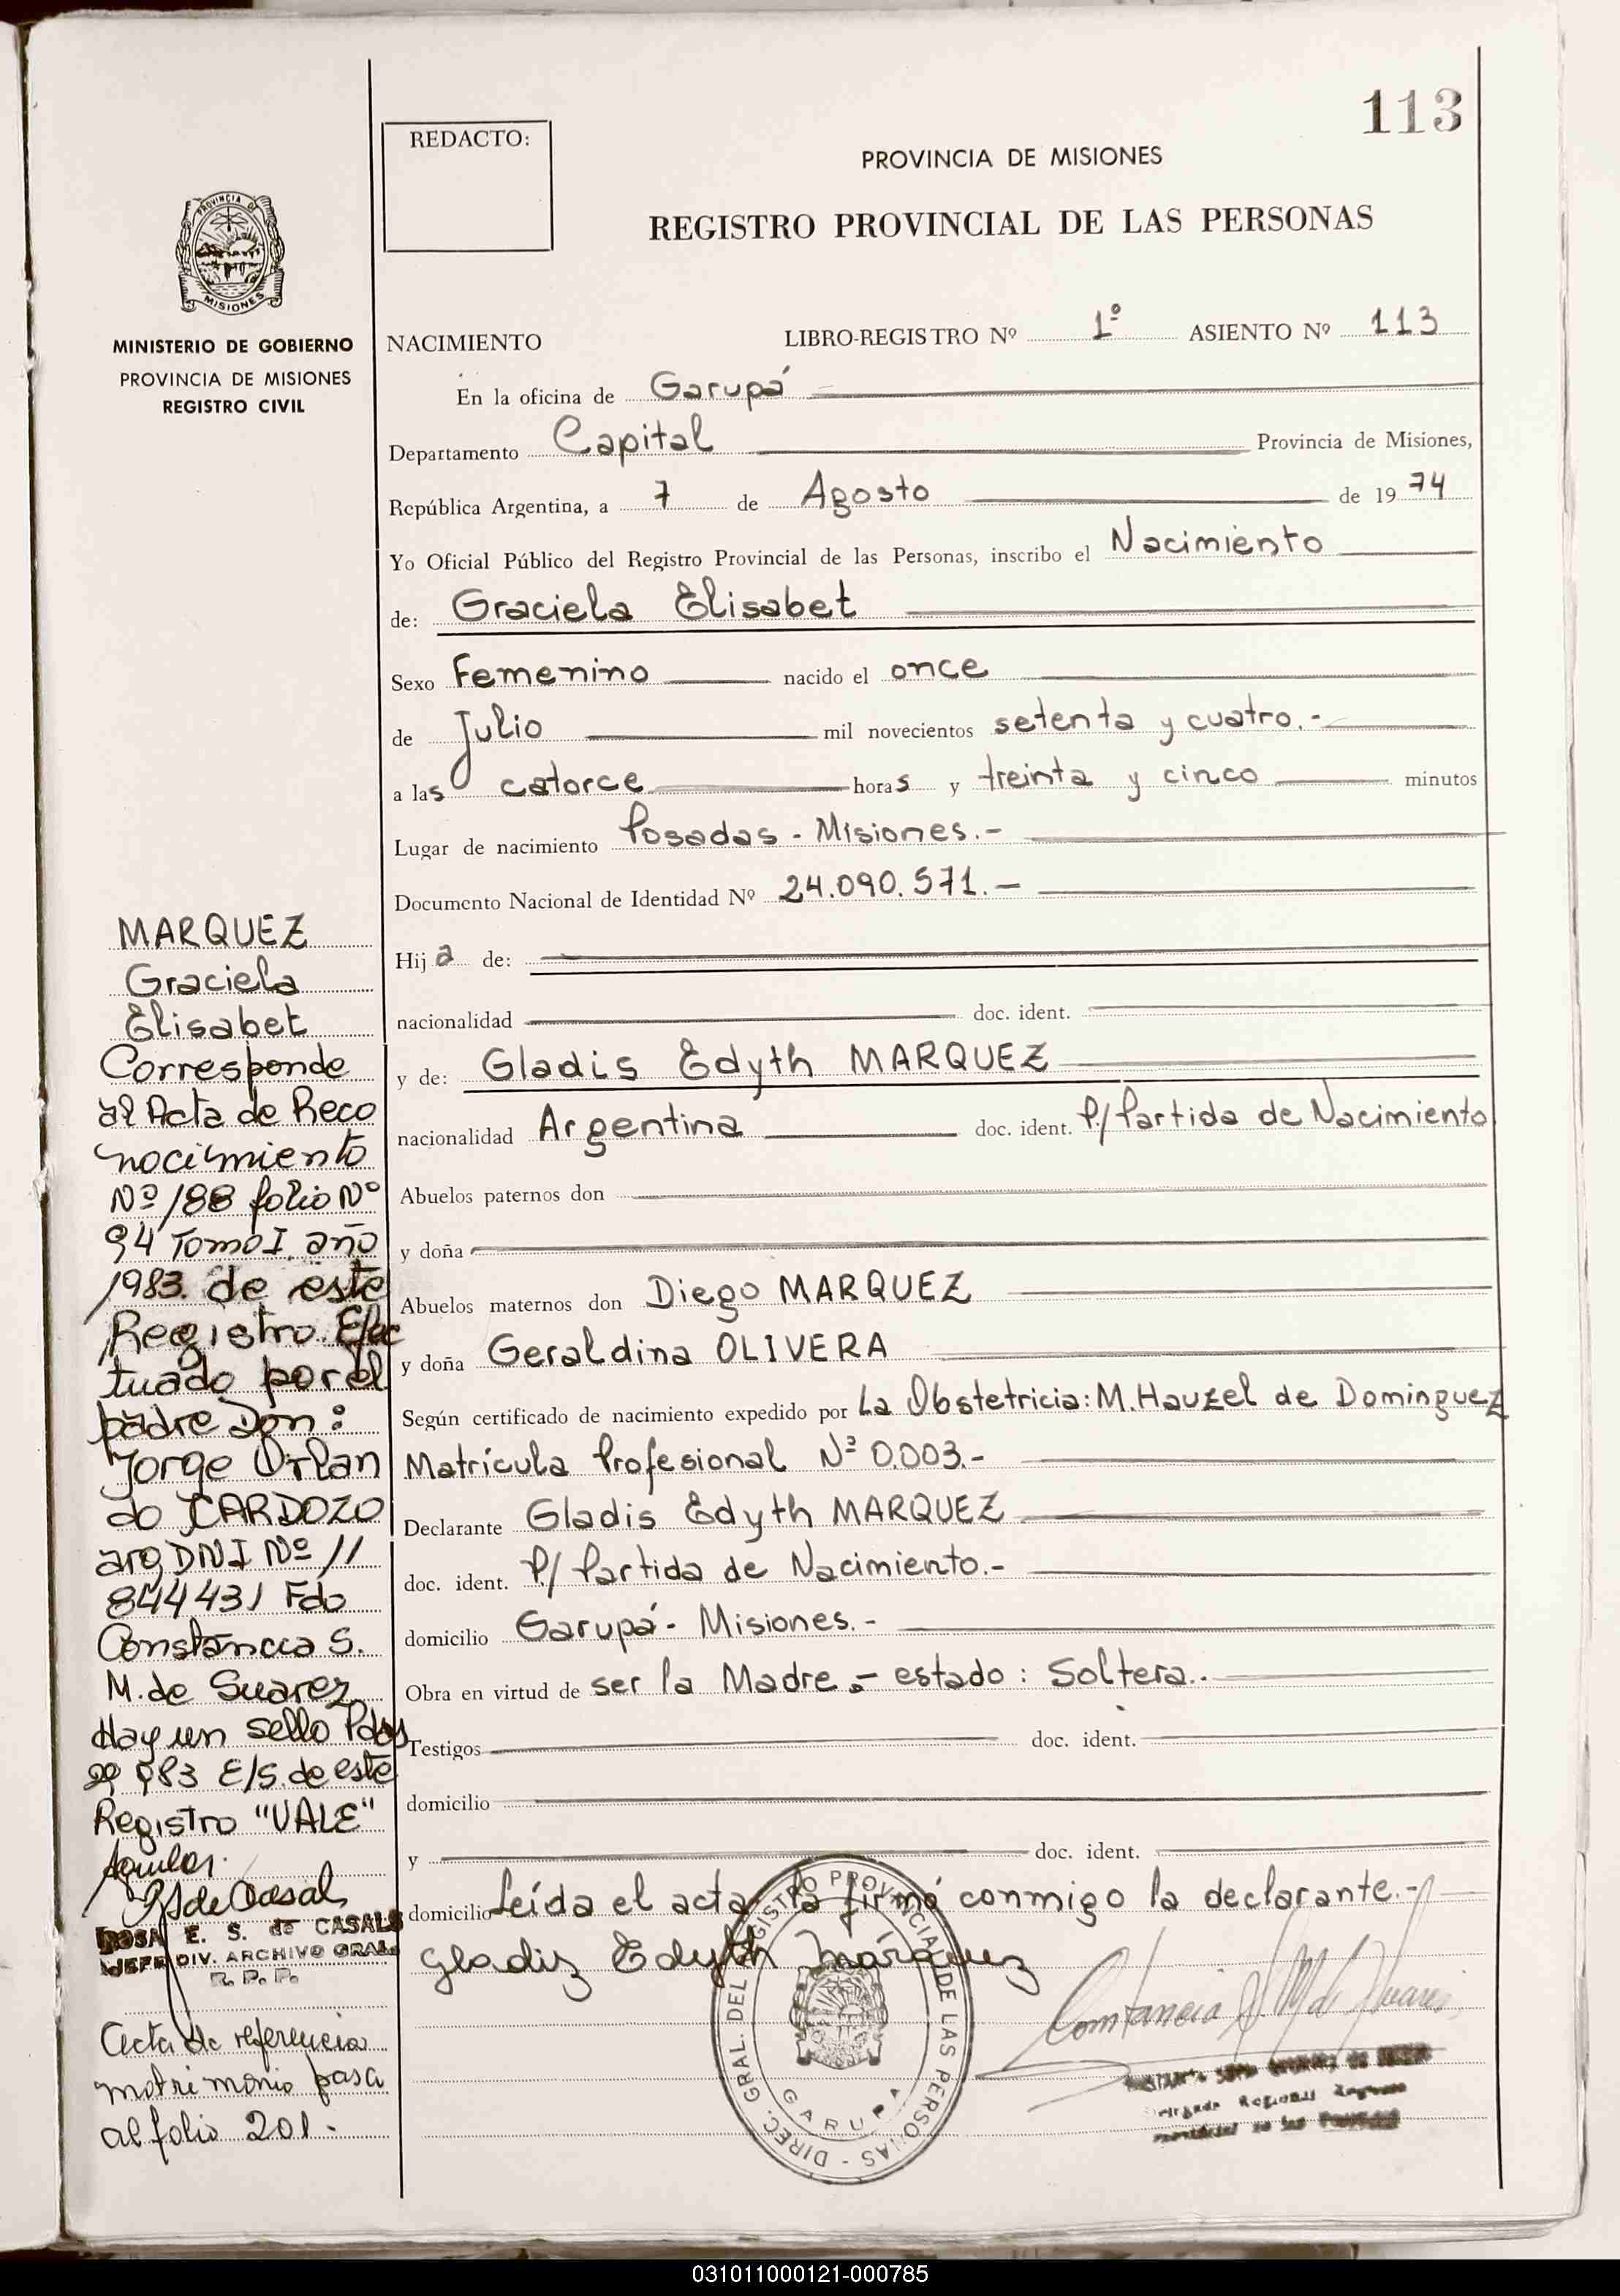 113
REDACTO:
PROVINCIA DE MISIONES
REGISTRO PROVINCIAL DE LAS PERSONAS
PROVINCIA DE
MISIONES
MINISTERIO DE GOBIERNO
PROVINCIA DE MISIONES
REGISTRO CIVIL
NACIMIENTO LIBRO-REGISTRO Nº 1º ASIENTO Nº 113
En la oficina de Garupá
Departamento Capital Provincia de Misiones,
República Argentina, a 7 de Agosto de 1974
Yo Oficial Público del Registro Provincial de las Personas, inscribo el Nacimiento
de: Graciela Elisabet
Sexo Femenino nacido el once
de Julio mil novecientos setenta y cuatro.-
a las catorce horas y treinta y cinco minutos
Lugar de nacimiento Posadas - Misiones.-
Documento Nacional de Identidad Nº 24.090.571.-
Hija de:
nacionalidad doc. ident.
y de: Gladis Edyth MARQUEZ
nacionalidad Argentina doc. ident. P/ Partida de Nacimiento
Abuelos paternos don
y doña
Abuelos maternos don Diego MARQUEZ
y doña Geraldina OLIVERA
Según certificado de nacimiento expedido por La Obstetricia: M. Hauzel de Dominguez
Matrícula Profesional Nº 0.003.-
Declarante Gladis Edyth MARQUEZ
doc. ident. P/ Partida de Nacimiento.-
domicilio Garupá - Misiones.-
Obra en virtud de ser la Madre.- estado: Soltera.-
Testigos doc. ident.
domicilio
y doc. ident.
domicilio Leída el acta la firmó conmigo la declarante.-
Gladiz Edyth Márquez
Constancia S M de Suarez
DIREC. GRAL. DEL REGISTRO PROVINCIAL DE LAS PERSONAS -
GARUPA
MARQUEZ
Graciela
Elisabet
Corresponde
al Acta de Reco
nocimiento
Nº 188 folio Nº
94 Tomo I año
1983. de este
Registro. Efec
tuado por el
padre Don:
Jorge Orlan
do CARDOZO
arg DNI Nº 11
844431 Fdo
Constancia S.
M. de Suarez
Hay un sello Pdas
983 E/S. de este
Registro "VALE"
RS de Casals
ROSA E. S. de CASALS
JEFE DIV. ARCHIVO GRAL.
R. P. P.
Acta de referencia
matrimonio pasa
al folio 201.-
031011000121-000785